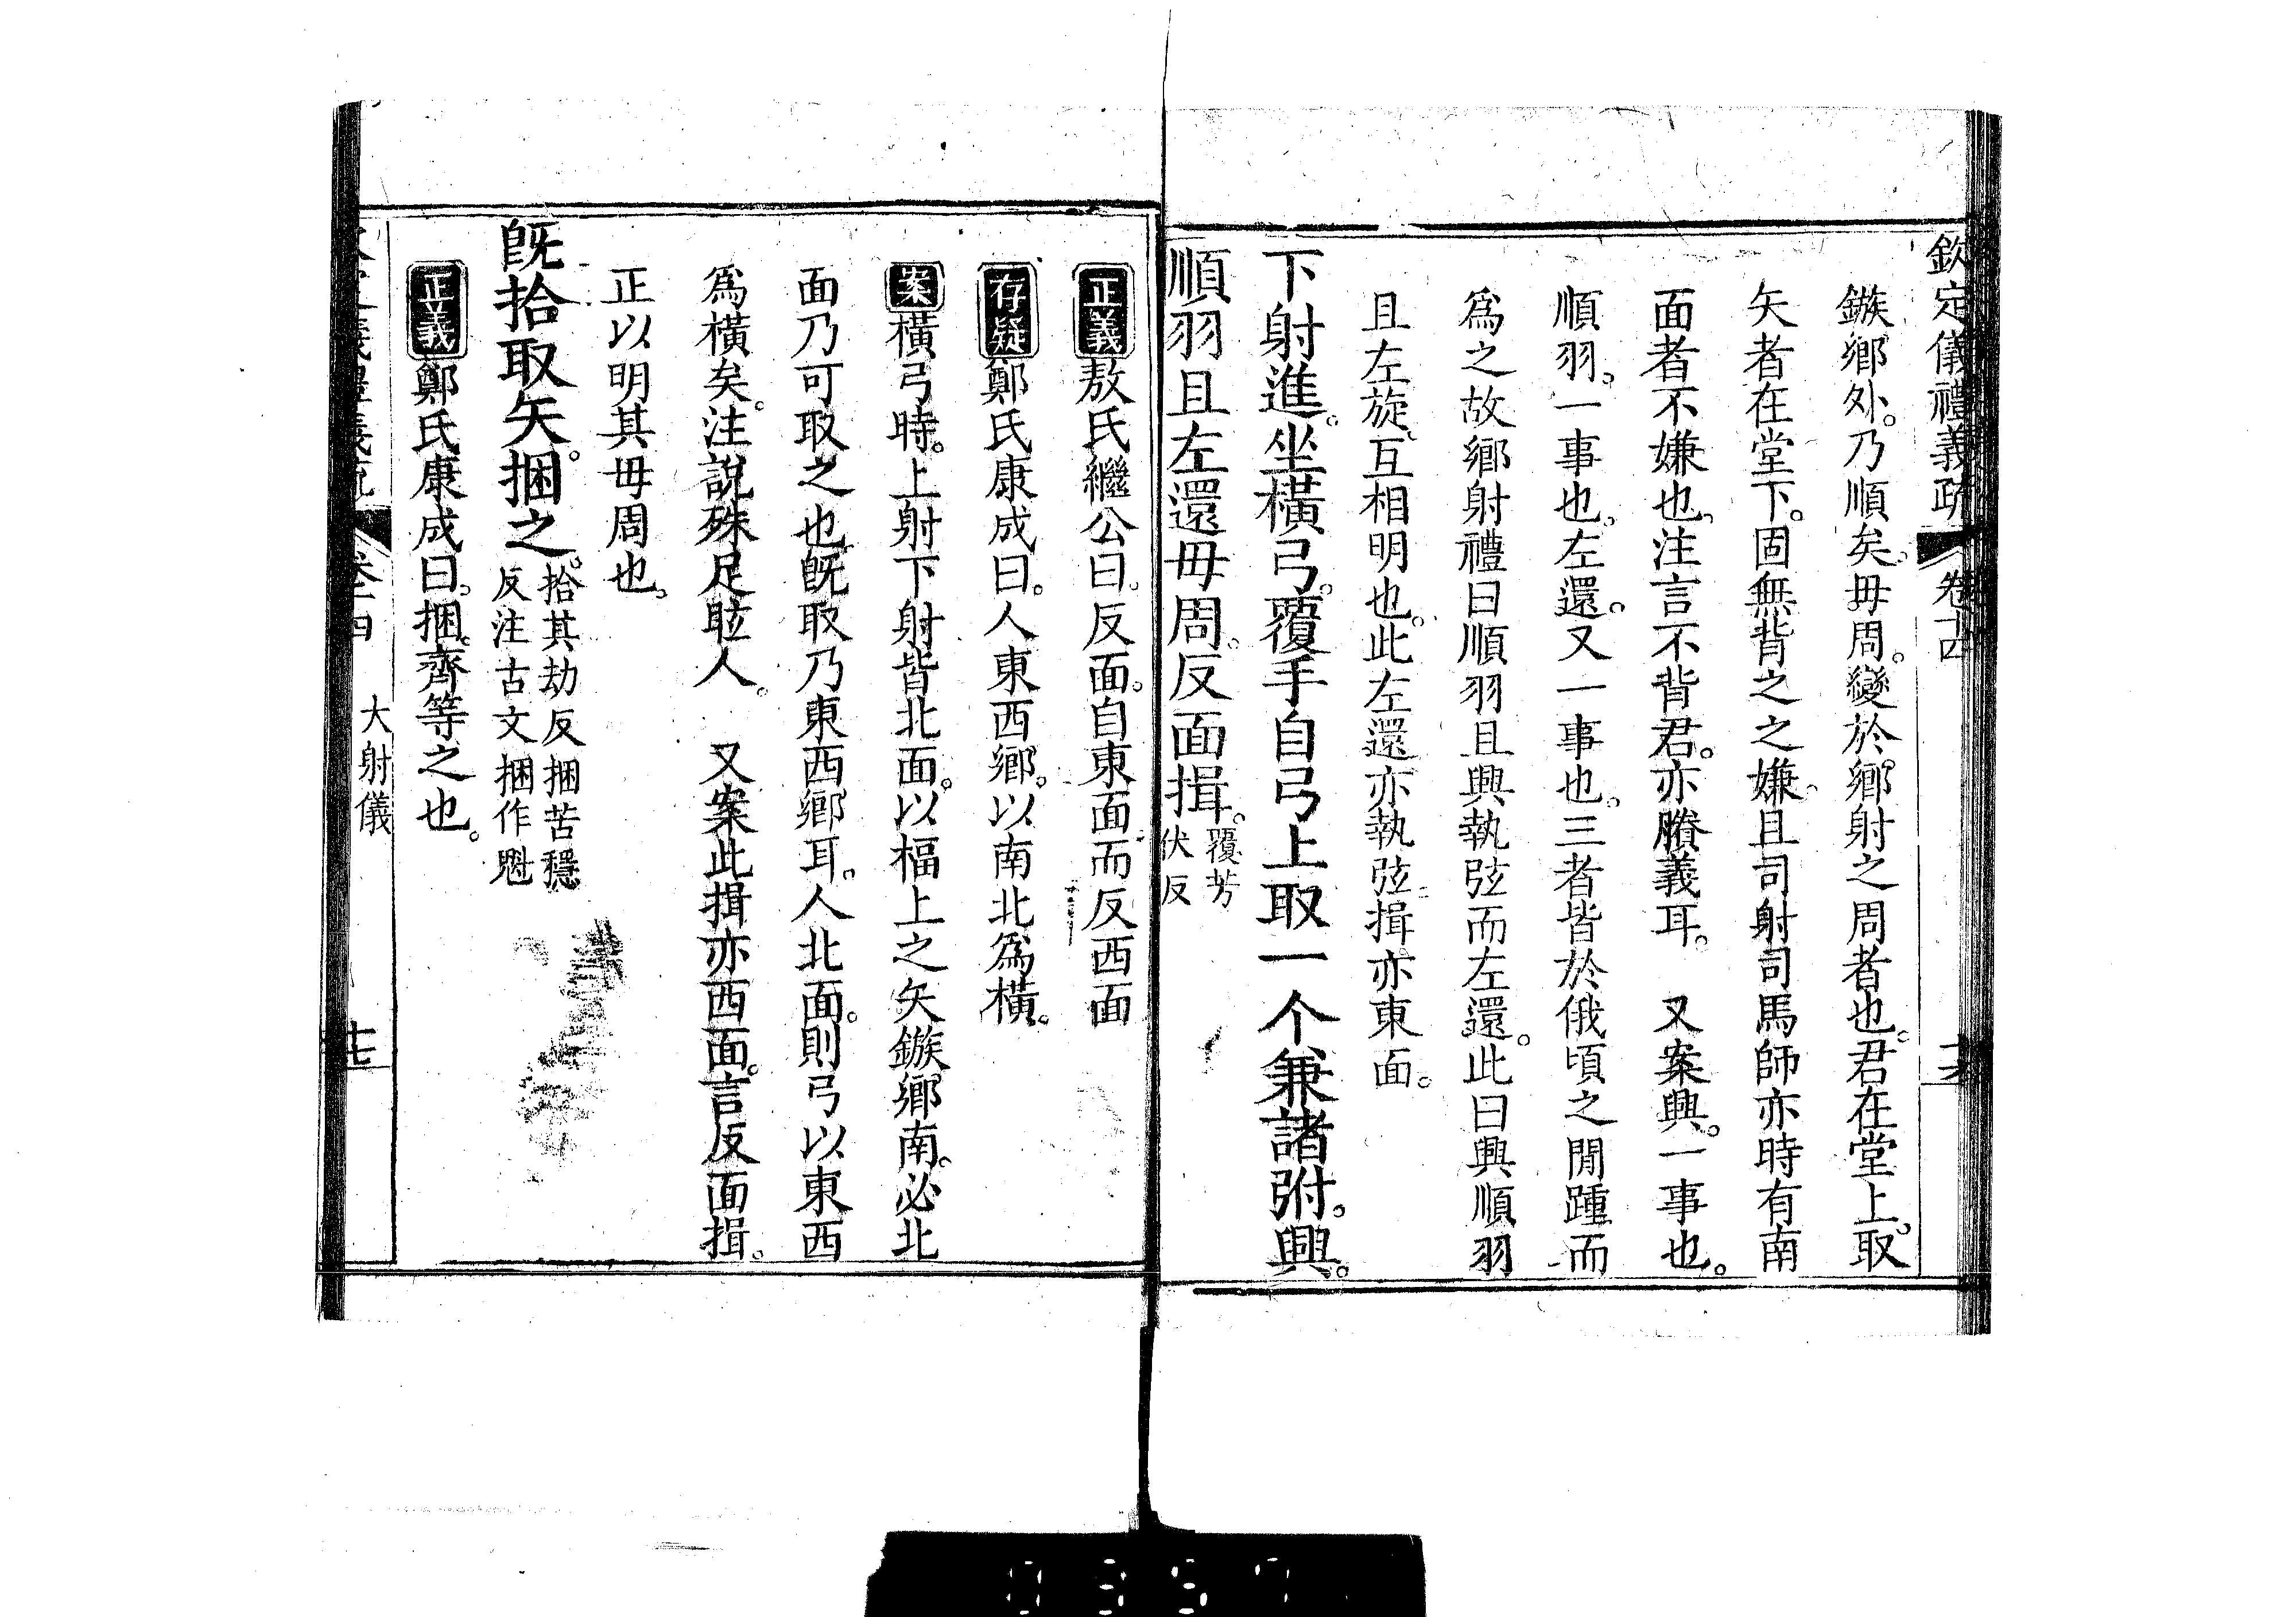 欽定儀禮義疏 卷十四
鏃鄉外。乃順矣。毋周。變於鄉射之周者也。君在堂上。取
矢者在堂下。固無背之之嫌。且司射司馬師亦時有南
面者不嫌也。注言不背君。亦賸義耳。 又案興。一事也。
順羽。一事也。左還。又一事也。三者皆於俄頃之閒踵而
爲之故鄉射禮曰順羽且興執弦而左還。此曰興順羽
且左旋。互相明也。此左還亦執弦揖亦東面。
下射進。坐橫弓。覆手自弓上取一个兼諸弣。興。
順羽且左還毋周。反面揖。覆芳
伏反
正義敖氏繼公曰。反面。自東面而反西面
存疑鄭氏康成曰。人東西鄉。以南北爲橫。
案橫弓時。上射下射皆北面。以楅上之矢鏃鄉南。必北
面乃可取之也旣取乃東西鄉耳。人北面。則弓以東西
爲橫矣。注說殊足眩人。 又案此揖亦西面。言反面揖。
正以明其毋周也。
旣拾取矢。捆之。拾其劫反捆苦穩
反注古文捆作魁
正義鄭氏康成曰。捆。齊等之也。
大射儀